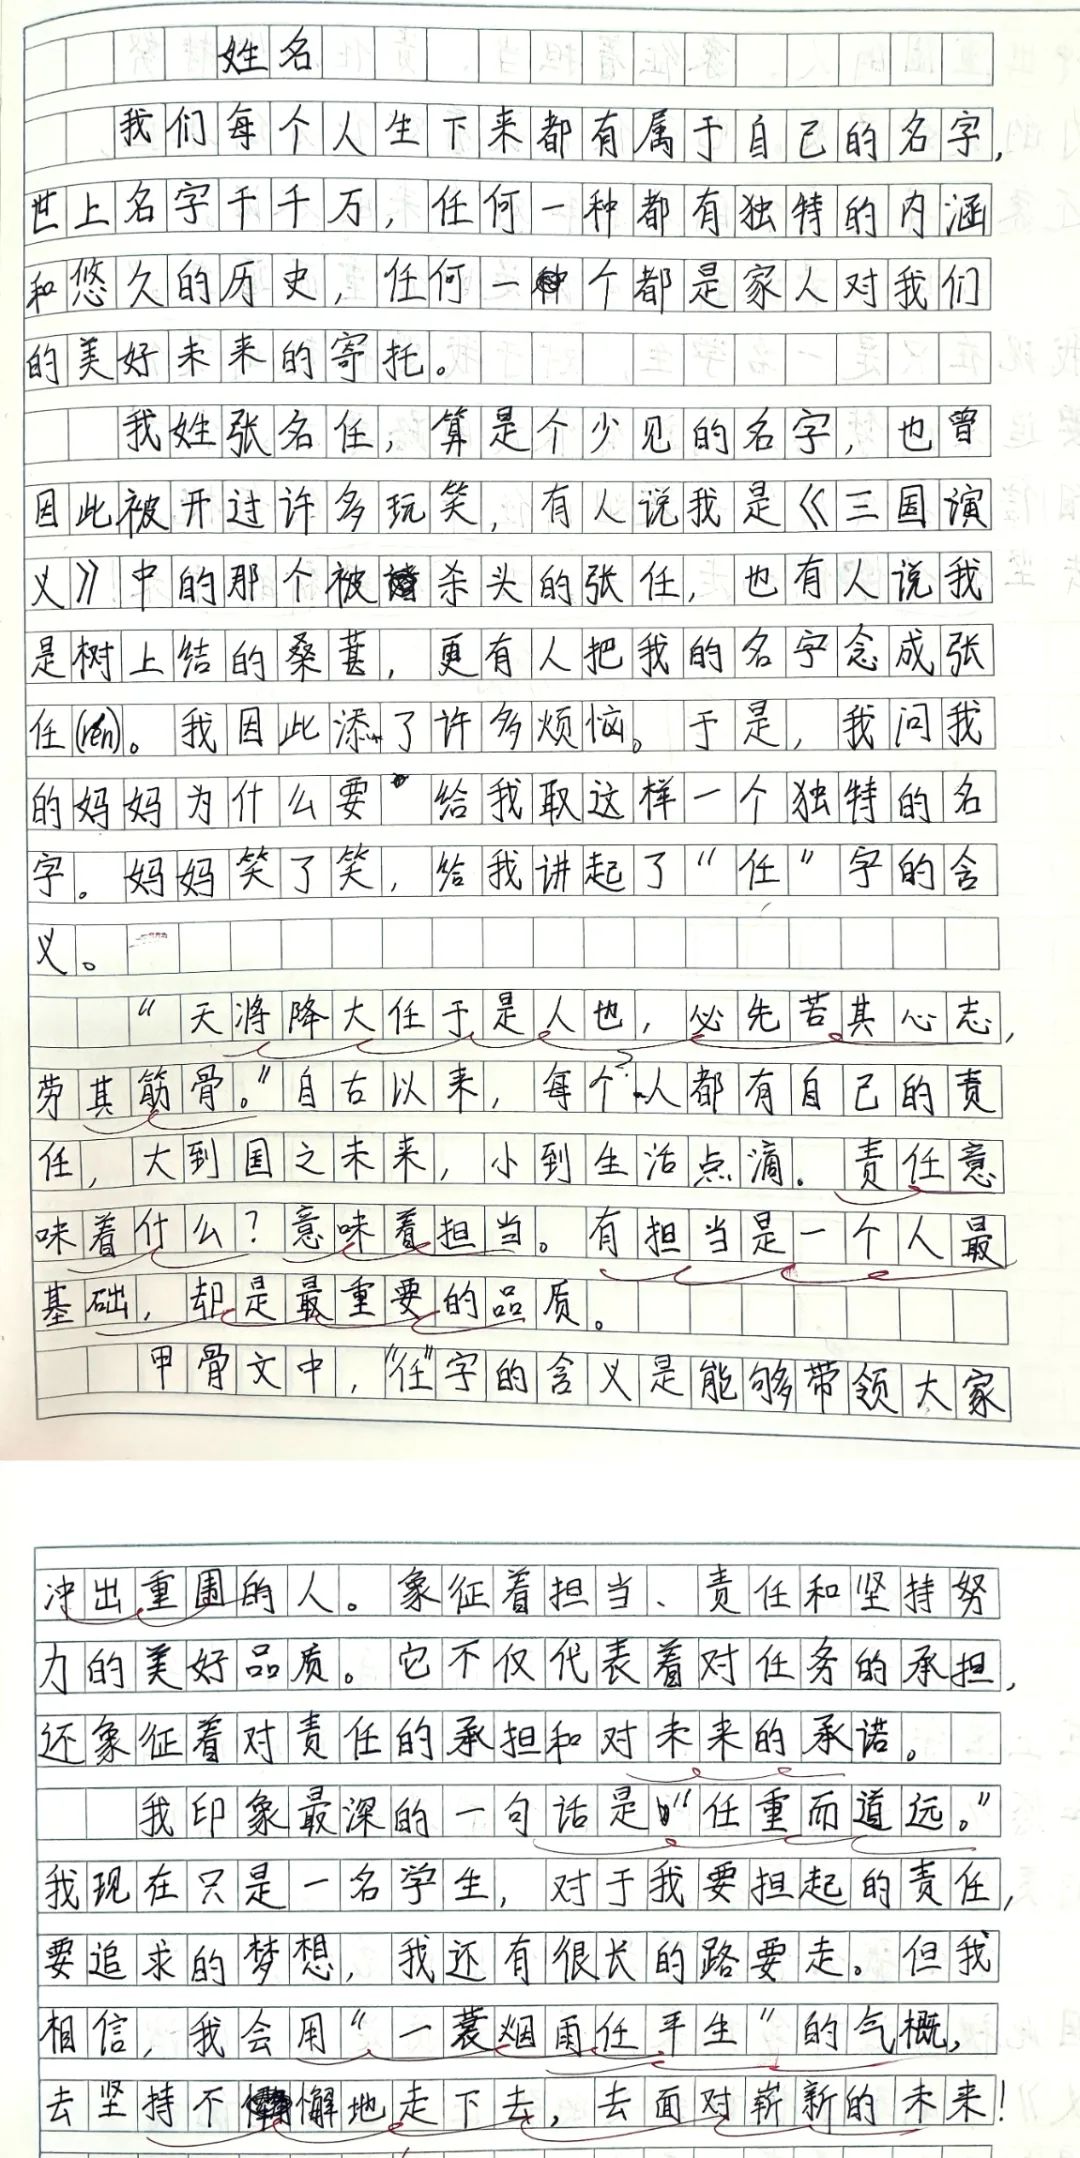 姓名
我们每个人生下来都有属于自己的名字,
世上名字千千万,任何一种都有独特的内涵
和悠久的历史,任何一个都是家人对我们
的美好未来的寄托。
我姓张名任,算是个少见的名字,也曾
因此被开过许多玩笑,有人说我是《三国演
义》中的那个被杀头的张任,也有人说我
是树上结的桑葚,更有人把我的名字念成张
任(rén)。我因此添了许多烦恼。于是,我问我
的妈妈为什么要给我取这样一个独特的名
字。妈妈笑了笑,给我讲起了“任”字的含
义。
“天将降大任于是人也,必先苦其心志,
劳其筋骨。”自古以来,每个人都有自己的责
任,大到国之未来,小到生活点滴.责任意
味着什么?意味着担当。有担当是一个人最
基础,却是最重要的品质。
甲骨文中,“任”字的含义是能够带领大家
冲出重围的人。象征着担当、责任和坚持努
力的美好品质。它不仅代表着对任务的承担,
还象征着对责任的承担和对未来的承诺。
我印象最深的一句话是“任重而道远。”
我现在只是一名学生,对于我要担起的责任,
要追求的梦想,我还有很长的路要走。但我
相信,我会用“一蓑烟雨任平生”的气概,
去坚持不懈地走下去,去面对崭新的未来!